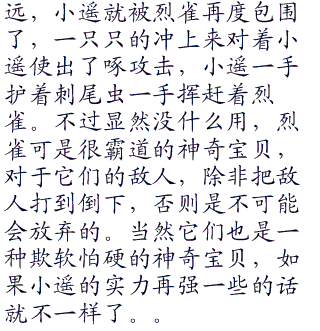 远，小遥就被烈雀再度包围
了，一只只的冲上来对着小
遥使出了啄攻击，小遥一手
护着刺尾虫一手挥赶着烈
雀。不过显然没什么用，烈
雀可是很霸道的神奇宝贝，
对于它们的敌人，除非把敌
人打到倒下，否则是不可能
会放弃的。当然它们也是一
种欺软怕硬的神奇宝贝，如
果小遥的实力再强一些的话
就不一样了。。